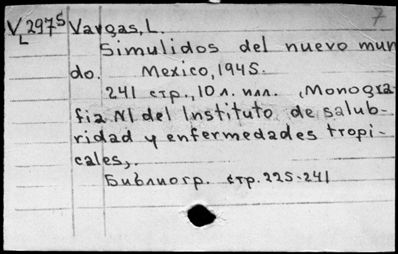 7
V 297⁵ Vargas, L.
L
Simulidos del nuevo mun
do. Mexico, 1945.
241 стр., 10 л. илл. (Monogra
fia N1 del Instituto de salub-
ridad y enfermedades tropi-
cales,.
Библиогр. стр. 225-241